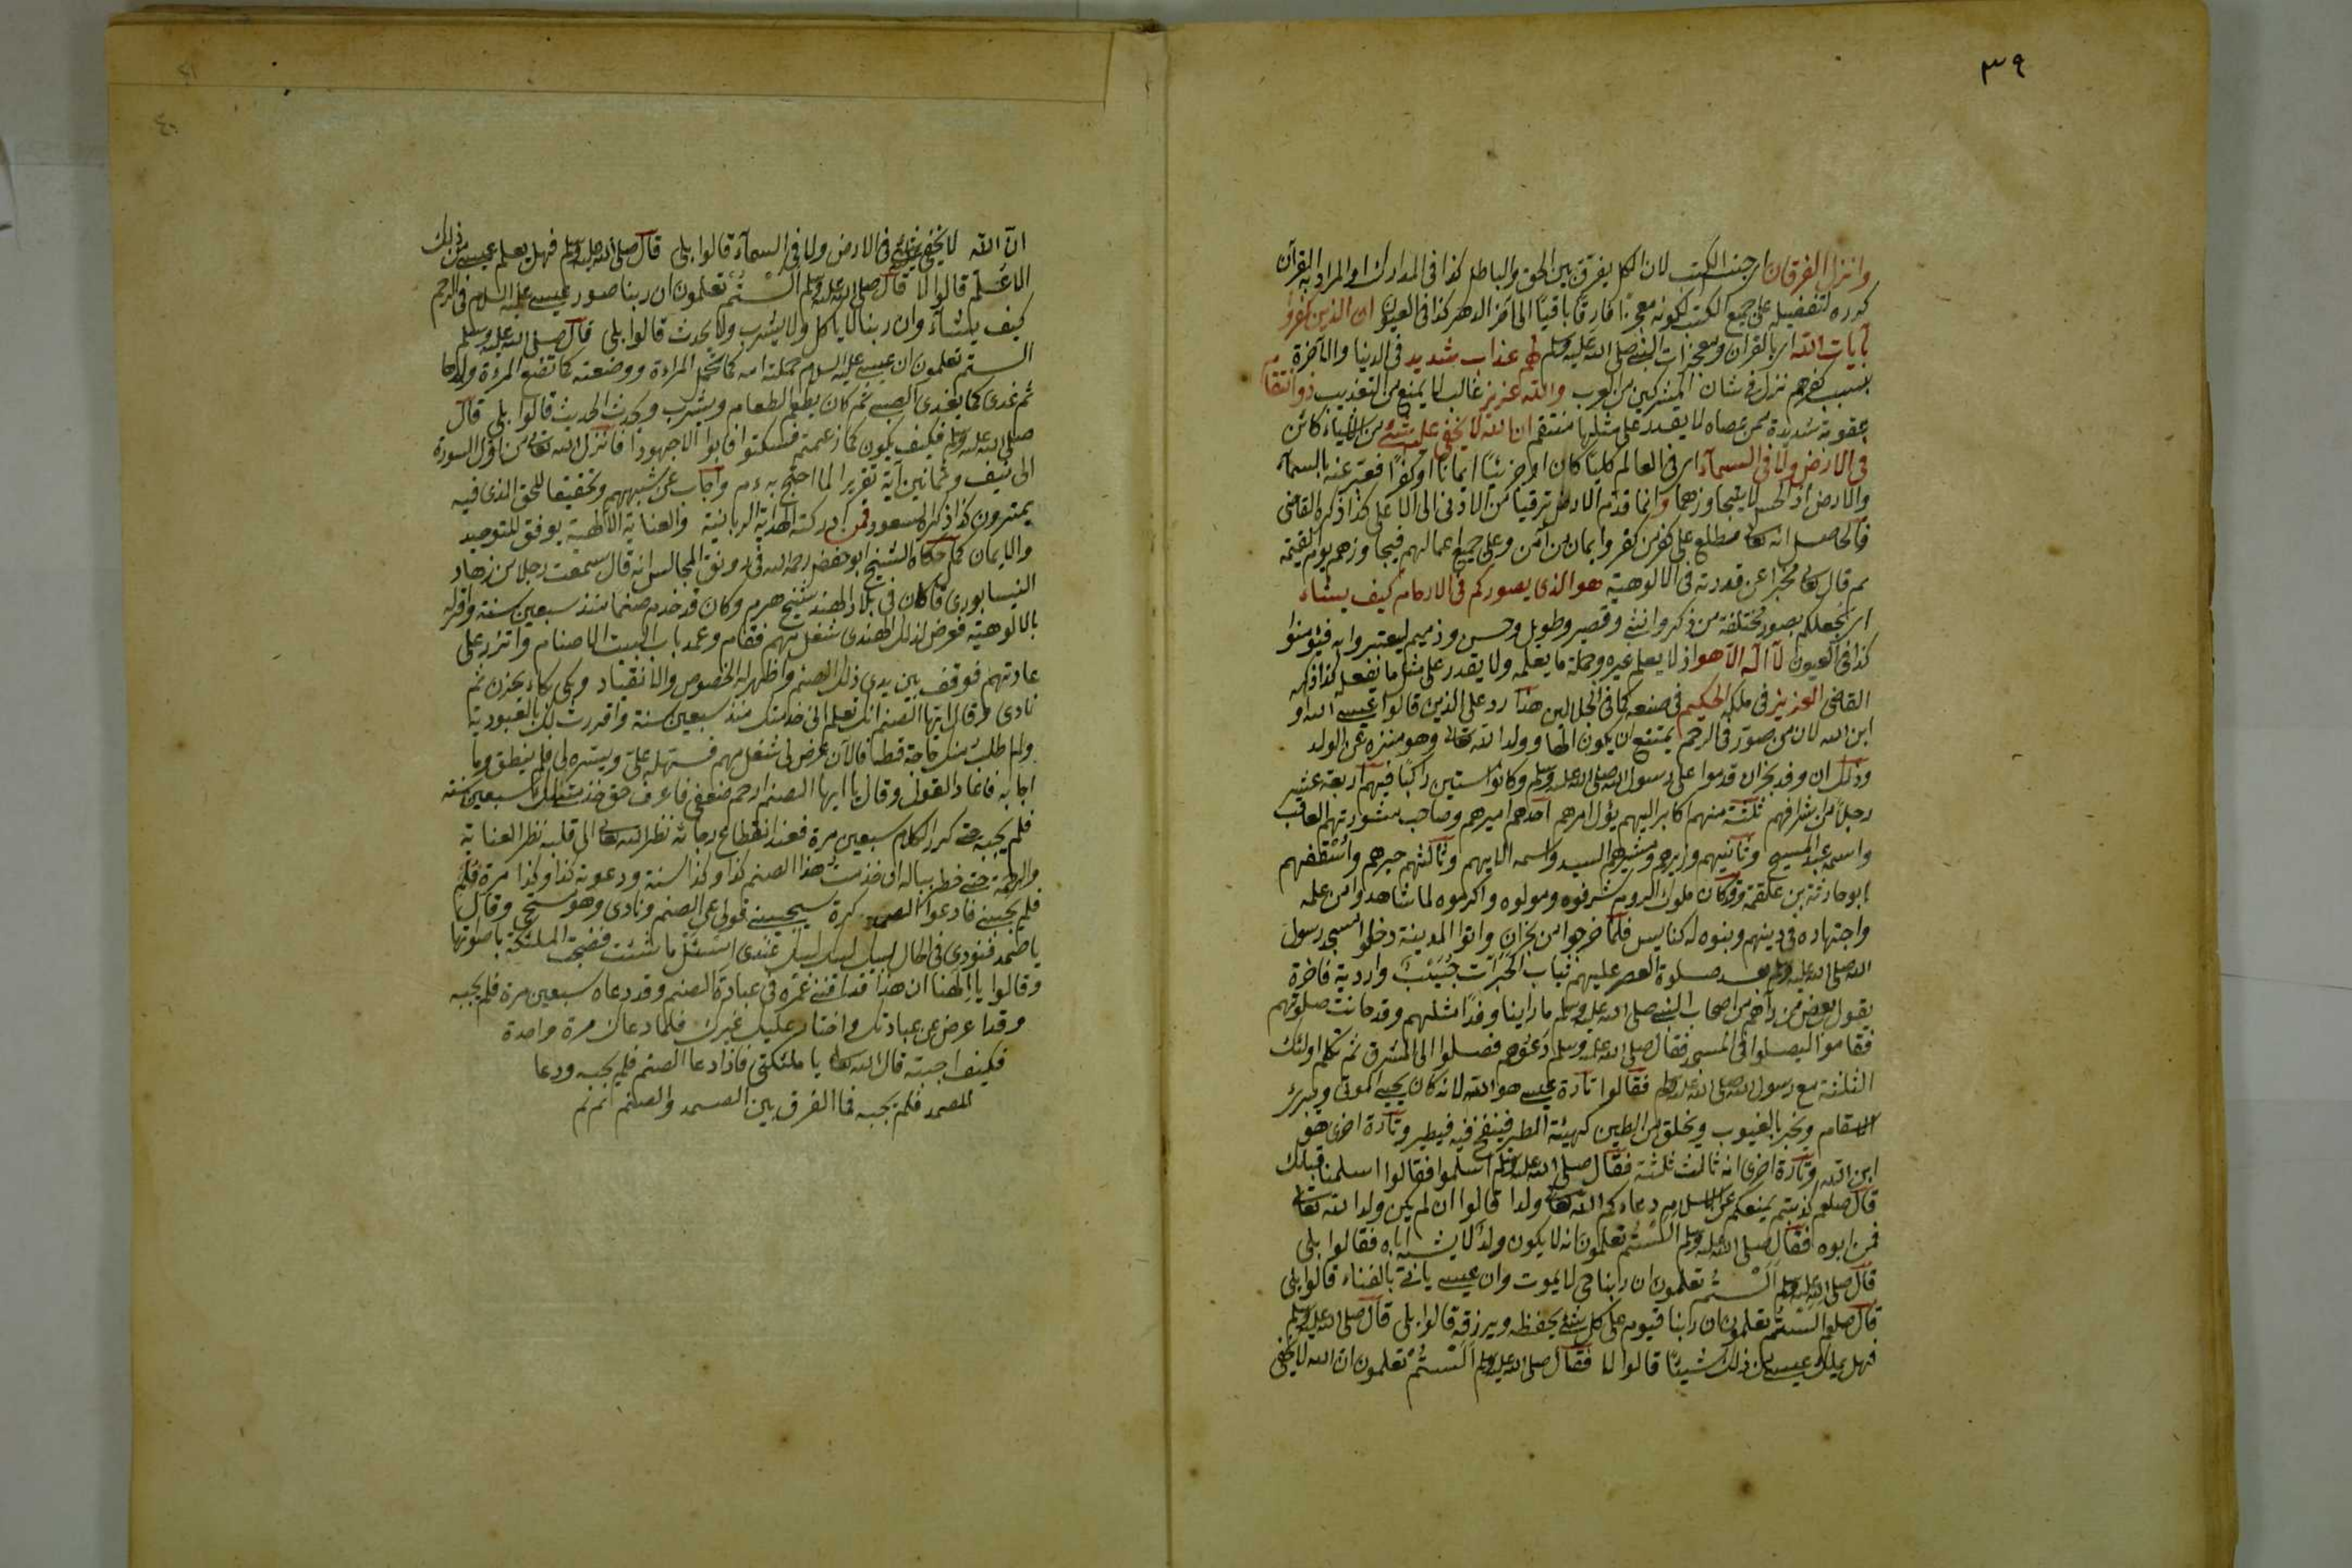 ٣٩
وانزل الفرقان اى جنس الكتب لان الكل يفرق بين الحق والباطل كذا فى المدارك او المراد به القرآن
كرره لتفضيله على جميع الكتب لكونه معجزًا فارقًا باقيًا الى آخر الدهر كذا فى العيون ان الذين كفروا
بآيات الله اى بالقرآن ومعجزات النبى صلى الله عليه وسلم لهم عذاب شديد فى الدنيا والآخرة
بسبب كفرهم نزل فى شان المشركين من العرب والله عزيز غالب لا يمنع من التعذيب ذو انتقام
عقوبة شديدة ممن عصاه لا يقدر على مثلها منتقم ان الله لا يخفى عليه شئ من الاشياء كائن
فى الارض ولا فى السمآء اى فى العالم كليًا كان او جزئيًا ايمانًا او كفرًا فعبر عنه بالسمآء
والارض اذ الحس لا يتجاوزهما وانما قدم الارض ترقيا من الادنى الى الاعلى كذا ذكره القاضى
فالحاصل انه تعا مطلع على كفر من كفر وايمان من آمن وعلى جميع اعمالهم فيجاوزهم يوم القيمة
ثم قال تعا مخبرا عن قدرته فى الالوهية هو الذى يصوركم فى الارحام كيف يشاء
اى يجعلكم بصور مختلفة من ذكر وانثى وقصير وطويل وحسن وذميم ليعتبروا به فيؤمنوا
كذا فى العيون لا اله الا هو اذ لا يعلم غيره وجملة ما يعلمه ولا يقدر على مثل ما يفعله كذا ذكره
القاضى العزيز فى ملكه الحكيم فى صنعه كما فى الجلالين هذا رد على الذين قالوا عيسى الله او
ابن الله لان من صور فى الرحم يمتنع ان يكون الها او ولدا لله تعا وهو منزه عن الولد
وذلك ان وفد نجران قدموا على رسول الله صلى الله عليه وسلم وكانوا ستين راكبًا فيهم اربعة عشر
رجلًا من اشرافهم ثلثة منهم اكابر اليهم يؤل امرهم احدهم اميرهم وصاحب مشورتهم العاقب
واسمه عبد المسيح وثانيهم وزيرهم ومشيرهم السيد واسمه الايهم وثالثهم حبرهم واسقفهم
ابو حارثة بن علقمة وقد كان ملوك الروم شرفوه ومولوه واكرموه لما شاهدوا من علمه
واجتهاده فى دينهم وبنوه له كنايس فلما خرجوا من نجران واتوا المدينة دخلوا مسجد رسول
الله صلى الله عليه وسلم بعد صلوة العصر عليهم ثياب الحبرات واردية فاخرة
يقول بعض من رآهم من اصحاب النبى صلى الله عليه وسلم ما راينا وفدًا مثلهم وقد حانت صلوتهم
فقاموا ليصلوا فى المسجد فقال صلى الله عليه وسلم دعوهم فصلوا الى المشرق ثم تكلم اولئك
الثلثة مع رسول الله صلى الله عليه وسلم فقالوا تارة عيسى هو الله لانه كان يحيى الموتى ويبرئ
الاسقام ويخبر بالغيوب ويخلق من الطين كهيئة الطير فينفخ فيه فيطير وتارة اخرى هو
ابن الله وتارة اخرى انه ثالث ثلثة فقال صلى الله عليه وسلم اسلموا فقالوا اسلمنا قبلك
قال صلعم كذبتم يمنعكم عن الاسلام دعاءكم الله تعا ولدا قالوا ان لم يكن ولدا لله تعا
فمن ابوه فقال صلى الله عليه وسلم الستم تعلمون انه لا يكون ولد الا يشبه اباه فقالوا بلى
قال صلى الله عليه وسلم الستم تعلمون ان ربنا حى لا يموت وان عيسى ياتى بالفناء قالوا بلى
قال صلعم الستم تعلمون ان ربنا قيوم على كل شئ يحفظه ويرزقه قالوا بلى قال صلى الله عليه وسلم
فهل يملك عيسى من ذلك شيئًا قالوا لا فقال صلى الله عليه وسلم الستم تعلمون ان الله لا يخفى
٤٠
ان الله لا يخفى عليه شئ فى الارض ولا فى السمآء قالوا بلى قال صلى الله عليه وسلم فهل يعلم عيسى من ذلك
الا ما علم قالوا لا قال صلى الله عليه وسلم الستم تعلمون ان ربنا صور عيسى عليه السلام فى الرحم
كيف يشآء وان ربنا لا ياكل ولا يشرب ولا يحدث قالوا بلى قال صلى الله عليه وسلم
الستم تعلمون ان عيسى عليه السلام حملته امه كما تحمل المراءة ووضعته كما تضع المرءة ولدها
ثم غذى كما يغذى الصبى ثم كان يطعم الطعام ويشرب ويحدث الحديث قالوا بلى قال
صلى الله عليه وسلم فكيف يكون كما زعمتم فسكتوا فابوا الا جهودا فانزل الله تعا من اول السورة
الى نيف وثمانين آية تقريرا لما احتج به ءم واجاب عن شبههم وتحقيقا للحق الذى فيه
يمترون كذا ذكره ابو السعود فمن ادركته الهداية الربانية والعناية الالهية يوفق للتوحيد
والايمان كما حكاه الشيخ ابو حفص رحمه الله فى رونق المجالس انه قال سمعت رجلا من زهاد
النيسابورى قال كان فى بلاد الهند شيخ هرم وكان قد خدم صنما منذ سبعين سنة واقر له
بالالوهية فعرض لذلك الهندى شغل مهم فقام وعمد باب البيت الاصنام واتزر على
عادتهم فوقف بين يدى ذلك الصنم واظهر له الخضوع والانقياد وبكى بكاء يحزن ثم
نادى وقال ايها الصنم انك تعلم انى خدمتك منذ سبعين سنة واقررت لك بالعبودية
ولم اطلب منك حاجة قط فالآن عرض لى شغل مهم فسهله على ويسره لى فلم ينطق وما
اجابه فاعاد القول وقال يا ايها الصنم ارحم ضعفى فاعرف حق خدمتى لك سبعين سنة
فلم يجبه حتى كرر الكلام سبعين مرة فعند انقطاع رجائه نظر الله تعا الى قلبه نظر العناية
والرحمة حتى خطر بباله انى خدمت هذا الصنم كذا وكذا سنة ودعوته كذا وكذا مرة فلم
فلم يجبنى فادعوا الصمد كرة سيجيبنى فولى عن الصنم ونادى وهو مستحى وقال
يا صمد فنودى فى الحال لبيك لبيك لبيك عبدى اسئل ما شئت فضجت الملئكة باصواتها
وقالوا يا الهنا ان هذا قد افنى عمره فى عبادة الصنم وقد دعاه سبعين مرة فلم يجبه
وقد اعرض عن عبادتك واختار عليك غيرك فلما دعاك مرة واحدة
فكيف اجبته قال الله تعا يا ملئكتى فاذا دعا الصنم فلم يجبه ودعا
الصمد فلم يجبه فما الفرق بين الصمد والصنم تم تم